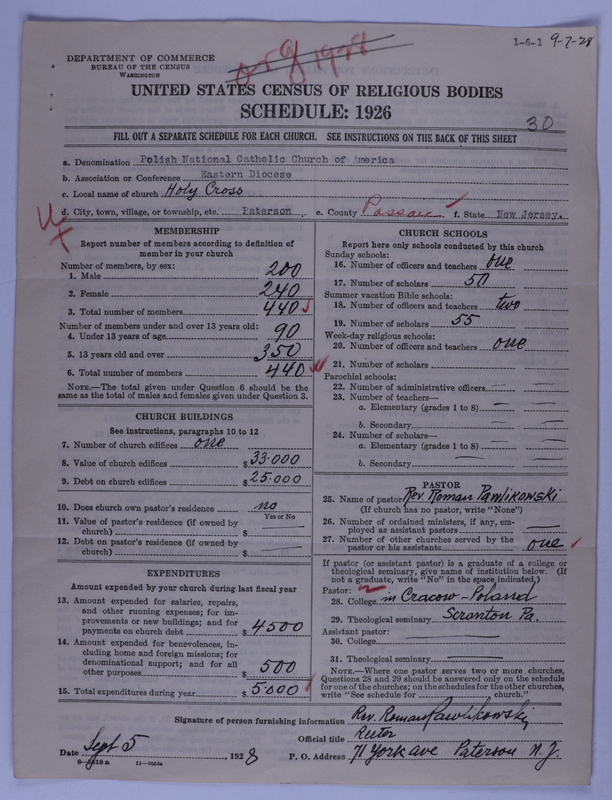 1-6-1 9-7-28
DEPARTMENT OF COMMERCE
BUREAU OF THE CENSUS
WASHINGTON
UNITED STATES CENSUS OF RELIGIOUS BODIES
SCHEDULE: 1926
30
FILL OUT A SEPARATE SCHEDULE FOR EACH CHURCH. SEE INSTRUCTIONS ON THE BACK OF THIS SHEET
a. Denomination Polish National Catholic Church of America
b. Association or Conference Eastern Diocese
c. Local name of church Holy Cross
d. City, town, village, or township, etc. Paterson, e. County Passaic f. State New Jersey.
MEMBERSHIP
Report number of members according to definition of
member in your church
Number of members, by sex:
1. Male 200
2. Female 240
3. Total number of members 440
Number of members under and over 13 years old:
4. Under 13 years of age 90
5. 13 years old and over 350
6. Total number of members 440
NOTE.—The total given under Question 6 should be the
same as the total of males and females given under Question 3.
CHURCH BUILDINGS
See instructions, paragraphs 10 to 12
7. Number of church edifices one
8. Value of church edifices $33.000
9. Debt on church edifices $25.000
10. Does church own pastor's residence no
Yes or No
11. Value of pastor's residence (if owned by
church) $
12. Debt on pastor's residence (if owned by
church) $
EXPENDITURES
Amount expended by your church during last fiscal year
13. Amount expended for salaries, repairs,
and other running expenses; for im-
provements or new buildings; and for
payments on church debt $4500
14. Amount expended for benevolences, in-
cluding home and foreign missions; for
denominational support; and for all
other purposes $500
15. Total expenditures during year $5000
CHURCH SCHOOLS
Report here only schools conducted by this church
Sunday schools:
16. Number of officers and teachers one
17. Number of scholars 50
Summer vacation Bible schools:
18. Number of officers and teachers two
19. Number of scholars 55
Week-day religious schools:
20. Number of officers and teachers one
21. Number of scholars
Parochial schools:
22. Number of administrative officers
23. Number of teachers—
a. Elementary (grades 1 to 8)
b. Secondary
24. Number of scholars—
a. Elementary (grades 1 to 8)
b. Secondary
PASTOR
25. Name of pastor Rev. Roman Pawlikowski
(If church has no pastor, write "None")
26. Number of ordained ministers, if any, em-
ployed as assistant pastors
27. Number of other churches served by the
pastor or his assistants one
If pastor (or assistant pastor) is a graduate of a college or
theological seminary, give name of institution below. (If
not a graduate, write "No" in the space indicated.)
Pastor:
28. College in Cracow-Poland
29. Theological seminary Scranton Pa.
Assistant pastor:
30. College
31. Theological seminary
NOTE.—Where one pastor serves two or more churches,
Questions 28 and 29 should be answered only on the schedule
for one of the churches; on the schedules for the other churches,
write "See schedule for church."
Signature of person furnishing information Rev. Roman Pawlikowski
Official title Rector
Date Sept 5, 1928 P. O. Address 71 York ave Paterson N.J.